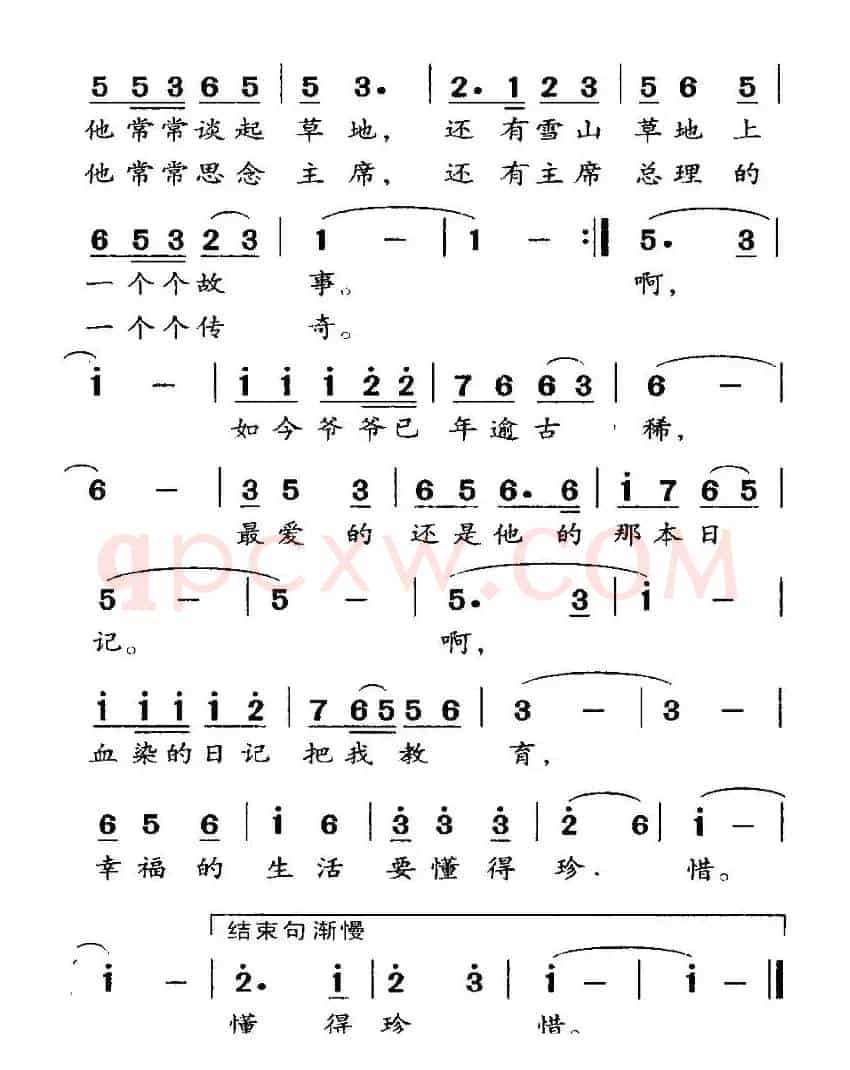 5 5 3 6 5 | 5 3. | 2. 1 2 3 | 5 6 5 |
他常常谈起 草地, 还有雪山草地上
他常常思念 主席, 还有主席总理的
6 5 3 2 3 | 1 — | 1 — :‖ 5. 3 |
一个个故 事。 啊,
一个个传 奇。
i — | i i i 2 2 | 7 6 6 3 | 6 — |
如今爷爷已 年逾古 稀,
6 — | 3 5 3 | 6 5 6. 6 | i 7 6 5 |
最爱的 还是他的 那本日
qpcxw.COM
5 — | 5 — | 5. 3 | i — |
记。 啊,
i i i i 2 | 7 6 5 5 6 | 3 — | 3 — |
血染的日记 把我教 育,
6 5 6 | i 6 | 3 3 3 | 2 6 | i — |
幸福的 生活 要懂得 珍 惜。
结束句渐慢
i — | 2. i | 2 3 | i — | i — ‖
懂 得 珍 惜。